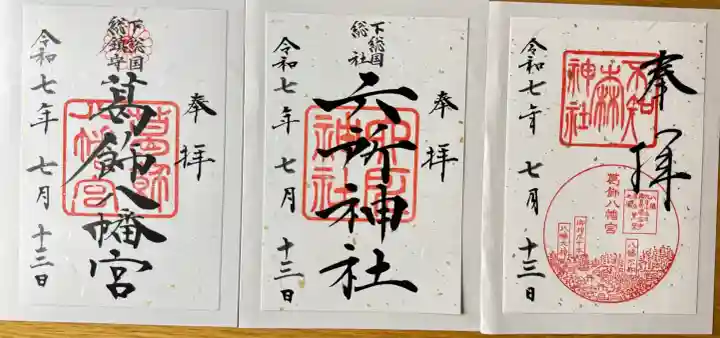 奉拝
下総国
総鎮守
葛飾八幡宮
葛飾
八幡宮
令和七年 七月 十三日
奉拝
下総国
総社
六所神社
六所
神社
令和七年 七月 十三日
奉拝
不知
森
神社
葛飾八幡宮
令和七年 七月 十三日